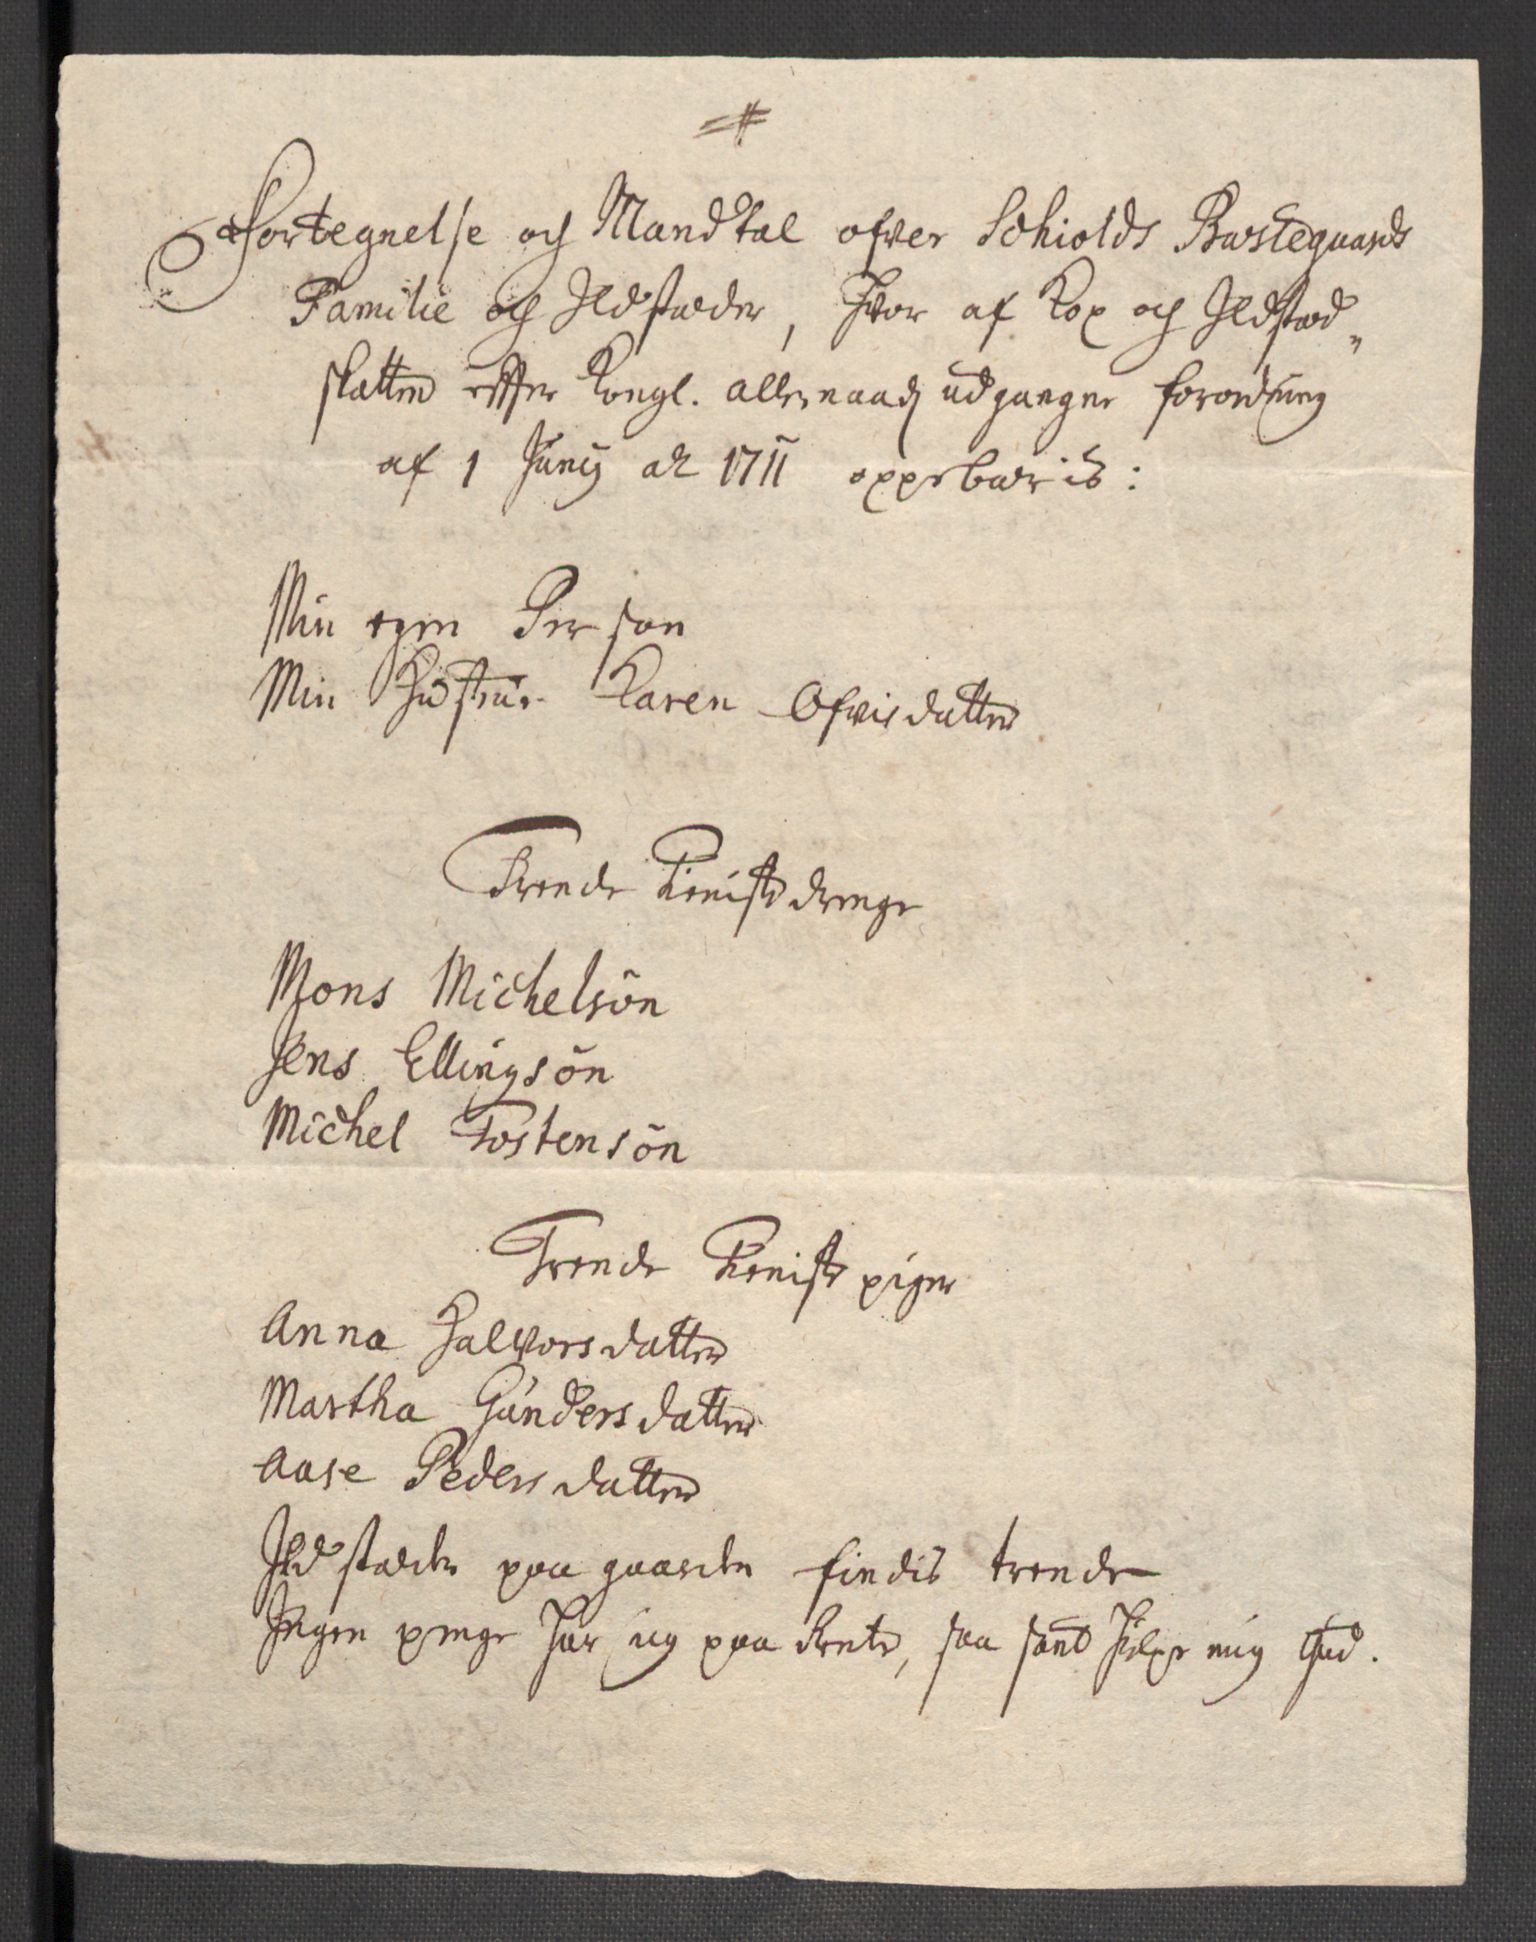 Fortegnelse och Mandtal ofver Schiolds Præstegaards
Familie och Ildstæder, hvor af Kop och Ildstæd„
skatten effter Kongl. allernaad. udgangne forordning
af 1 Junij ao 1711 oppebæris:
Min egen Person
Min Hustrue Karen Ofvisdatter
Trende Tienistdrenge
Mons Michelsön
Jens Ellingsön
Michel Tostensön
Trende Tieniste piger
Anna Halvorsdatter
Martha Gundersdatter
Aase Pedersdatter
Ildstæder paa gaarden findis trende
Ingen penge har ieg paa Rente, saa sandt hielpe mig Gud.